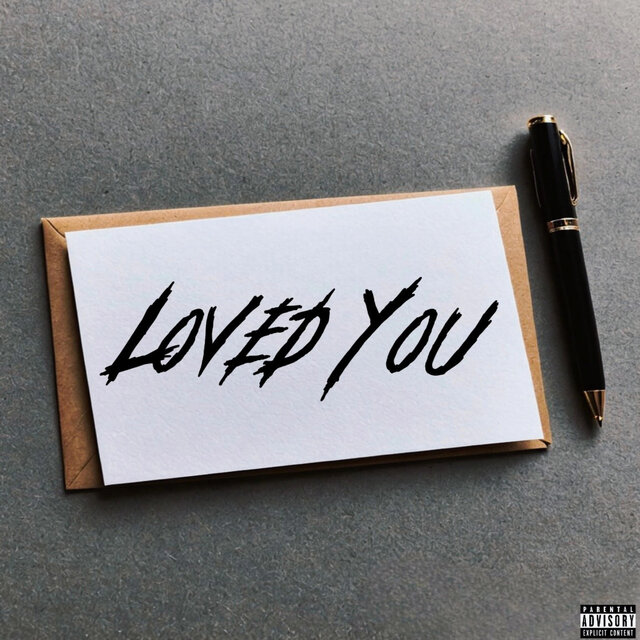 LOVED YOU
PARENTAL
ADVISORY
EXPLICIT CONTENT